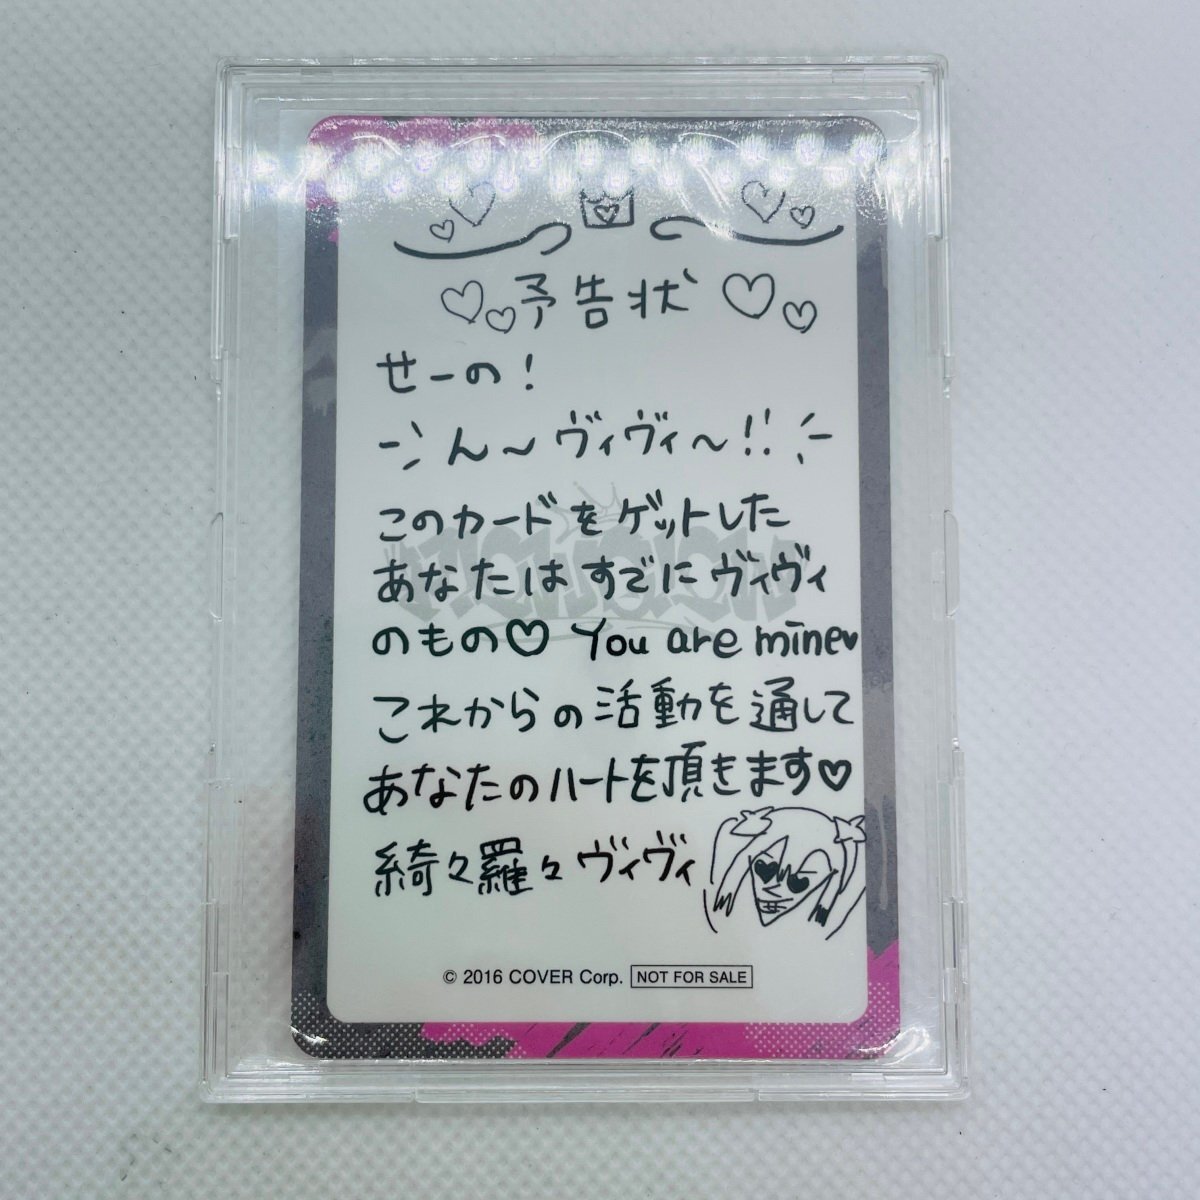 ♡♡予告状♡♡
せーの！
ん〜ヴィヴィ〜！！
このカードをゲットした
あなたはすでにヴィヴィ
のもの♡ You are mine♥
これからの活動を通して
あなたのハートを頂きます♡
綺々羅々ヴィヴィ
© 2016 COVER Corp. NOT FOR SALE